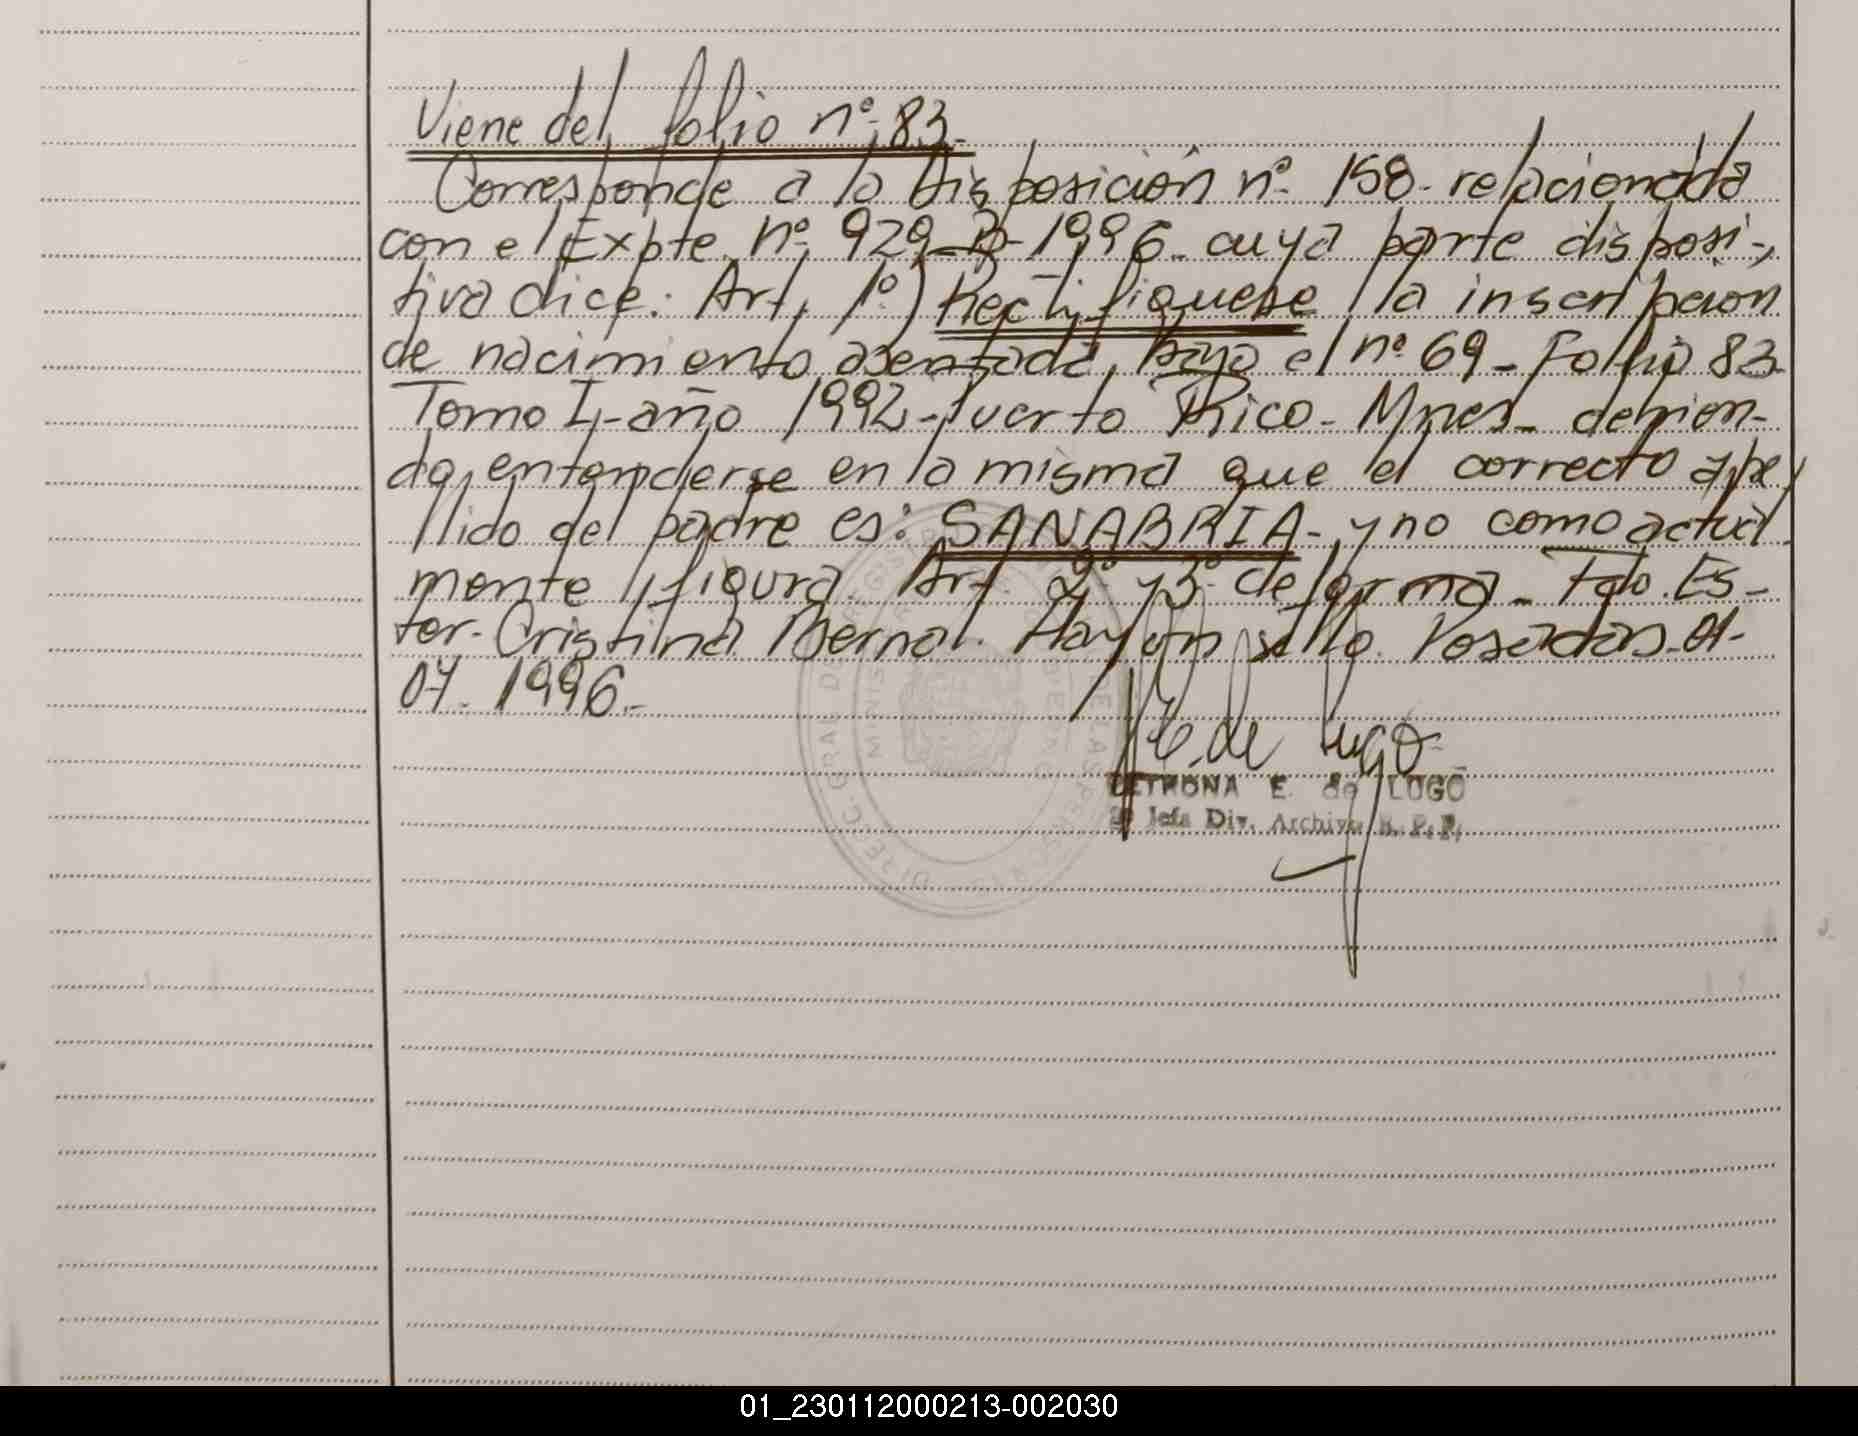 Viene del folio nº 83-
Corresponde a la Disposición nº 158- relacionada
con el Expte. nº 929-B-1996- cuya parte disposi-
tiva dice: Art, 1º) Rectifiquese la inscripcion
de nacimiento asentada, bajo el nº 69- Folio 83
Tomo I-año 1992-Puerto Rico- Mnes- debien-
do, entenderse en la misma que el correcto ape
llido del padre es: SANABRIA- y no como actual
mente figura. Art. 2º y 3º de forma- Fdo. Es-
ter- Cristina Bernal. Hay un sello. Posadas-01-
07- 1996.-
de Lugo
PETRONA E. de LUGO
2º Jefa Div. Archivo R. P. P.
MINIS
01_230112000213-002030